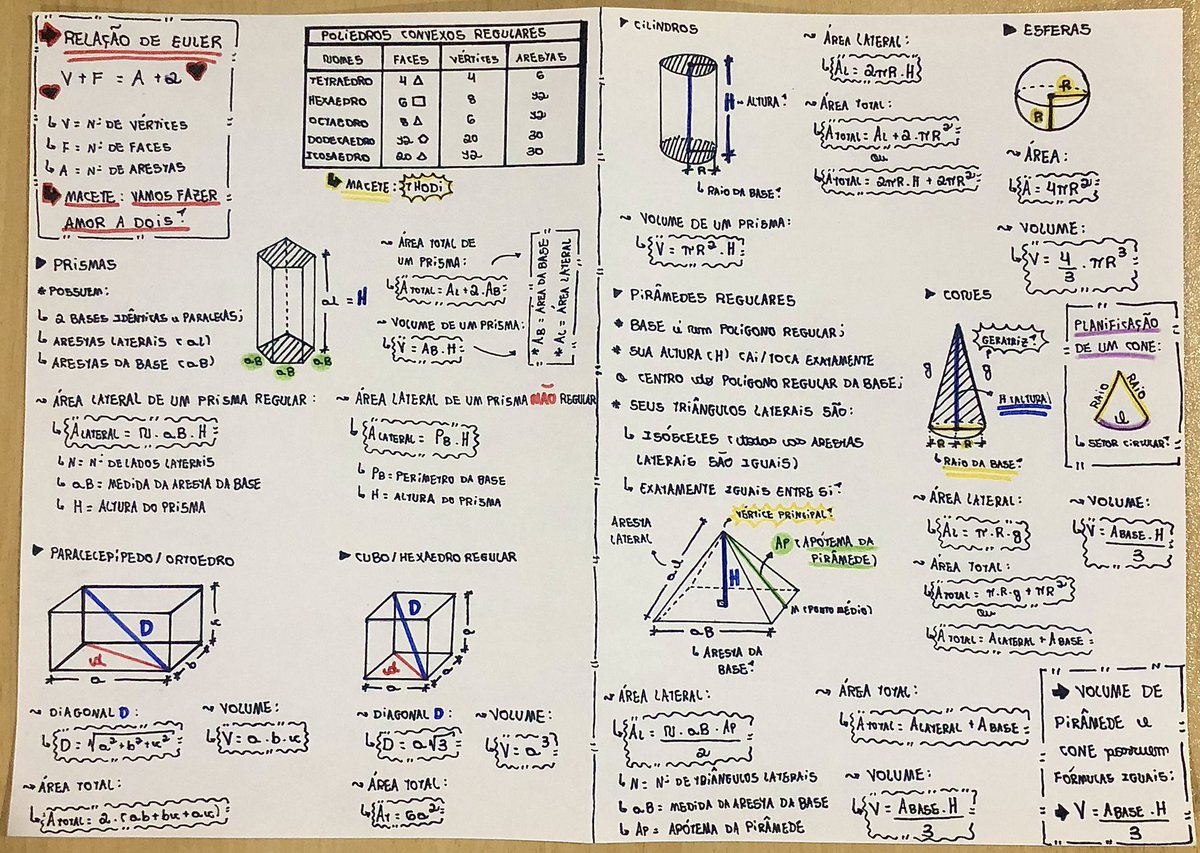 RELAÇÃO DE EULER
V + F = A + 2
↳ V = Nº DE VÉRTICES
↳ F = Nº DE FACES
↳ A = Nº DE ARESTAS
MACETE: VAMOS FAZER
AMOR A DOIS!
POLIEDROS CONVEXOS REGULARES
NOMES FACES VÉRTICES ARESTAS
TETRAEDRO 4 △ 4 6
HEXAEDRO 6 □ 8 12
OCTAEDRO 8 △ 6 12
DODECAEDRO 12 ⬠ 20 30
ICOSAEDRO 20 △ 12 30
MACETE: THODI
▶ PRISMAS
* POSSUEM:
↳ 2 BASES IDÊNTICAS e PARALELAS;
↳ ARESTAS LATERAIS (al)
↳ ARESTAS DA BASE (aB)
al = H
aB aB aB
~ ÁREA TOTAL DE
UM PRISMA:
↳ ATOTAL = AL + 2.AB
~ VOLUME DE UM PRISMA:
↳ V = AB.H
* AB = ÁREA DA BASE
* AL = ÁREA LATERAL
~ ÁREA LATERAL DE UM PRISMA REGULAR:
↳ ALATERAL = n.aB.H
↳ N = Nº DE LADOS LATERAIS
↳ aB = MEDIDA DA ARESTA DA BASE
↳ H = ALTURA DO PRISMA
~ ÁREA LATERAL DE UM PRISMA NÃO REGULAR
↳ ALATERAL = PB.H
↳ PB = PERÍMETRO DA BASE
↳ H = ALTURA DO PRISMA
▶ PARALELEPÍPEDO / ORTOEDRO
D d a b c
~ DIAGONAL D:
↳ D = √a²+b²+c²
~ VOLUME:
↳ V = a.b.c
~ ÁREA TOTAL:
↳ ATOTAL = 2.(ab+bc+ac)
▶ CUBO / HEXAEDRO REGULAR
D d a a a
~ DIAGONAL D:
↳ D = a√3
~ VOLUME:
↳ V = a³
~ ÁREA TOTAL:
↳ AT = 6a²
▶ CILINDROS
H ~ ALTURA!
R
↳ RAIO DA BASE!
~ ÁREA LATERAL:
↳ AL = 2πR.H
~ ÁREA TOTAL:
↳ ATOTAL = AL + 2.πR²
ou
↳ ATOTAL = 2πR.H + 2πR²
~ VOLUME DE UM PRISMA:
↳ V = πR².H
▶ ESFERAS
R
R
~ ÁREA:
↳ A = 4πR²
~ VOLUME:
↳ V = 4/3 . πR³
▶ PIRÂMEDES REGULARES
* BASE é um POLÍGONO REGULAR;
* SUA ALTURA (H) CAI/TOCA EXATAMENTE
O CENTRO do POLÍGONO REGULAR DA BASE;
* SEUS TRIÂNGULOS LATERAIS SÃO:
↳ ISÓSCELES (todas as ARESTAS
LATERAIS SÃO IGUAIS)
↳ EXATAMENTE IGUAIS ENTRE SI!
VÉRTICE PRINCIPAL!
ARESTA
LATERAL
al
H
AP (APÓTEMA DA
PIRÂMEDE)
M (PONTO MÉDIO)
aB
↳ ARESTA DA
BASE!
~ ÁREA LATERAL:
↳ AL = n.aB.AP
2
↳ N = Nº DE TRIÂNGULOS LATERAIS
↳ aB = MEDIDA DA ARESTA DA BASE
↳ AP = APÓTEMA DA PIRÂMEDE
~ ÁREA TOTAL:
↳ ATOTAL = ALATERAL + ABASE
~ VOLUME:
↳ V = ABASE.H
3
▶ CONES
GERATRIZ!
g g
H (ALTURA)
R R
↳ RAIO DA BASE!
PLANIFICAÇÃO
DE UM CONE:
RAIO RAIO
l
↳ SETOR CIRCULAR!
~ ÁREA LATERAL:
↳ AL = π.R.g
~ ÁREA TOTAL:
↳ ATOTAL = π.R.g + πR²
ou
↳ ATOTAL = ALATERAL + ABASE
~ VOLUME:
↳ V = ABASE.H
3
➡ VOLUME DE
PIRÂMEDE e
CONE possuem
FÓRMULAS IGUAIS:
➡ V = ABASE.H
3